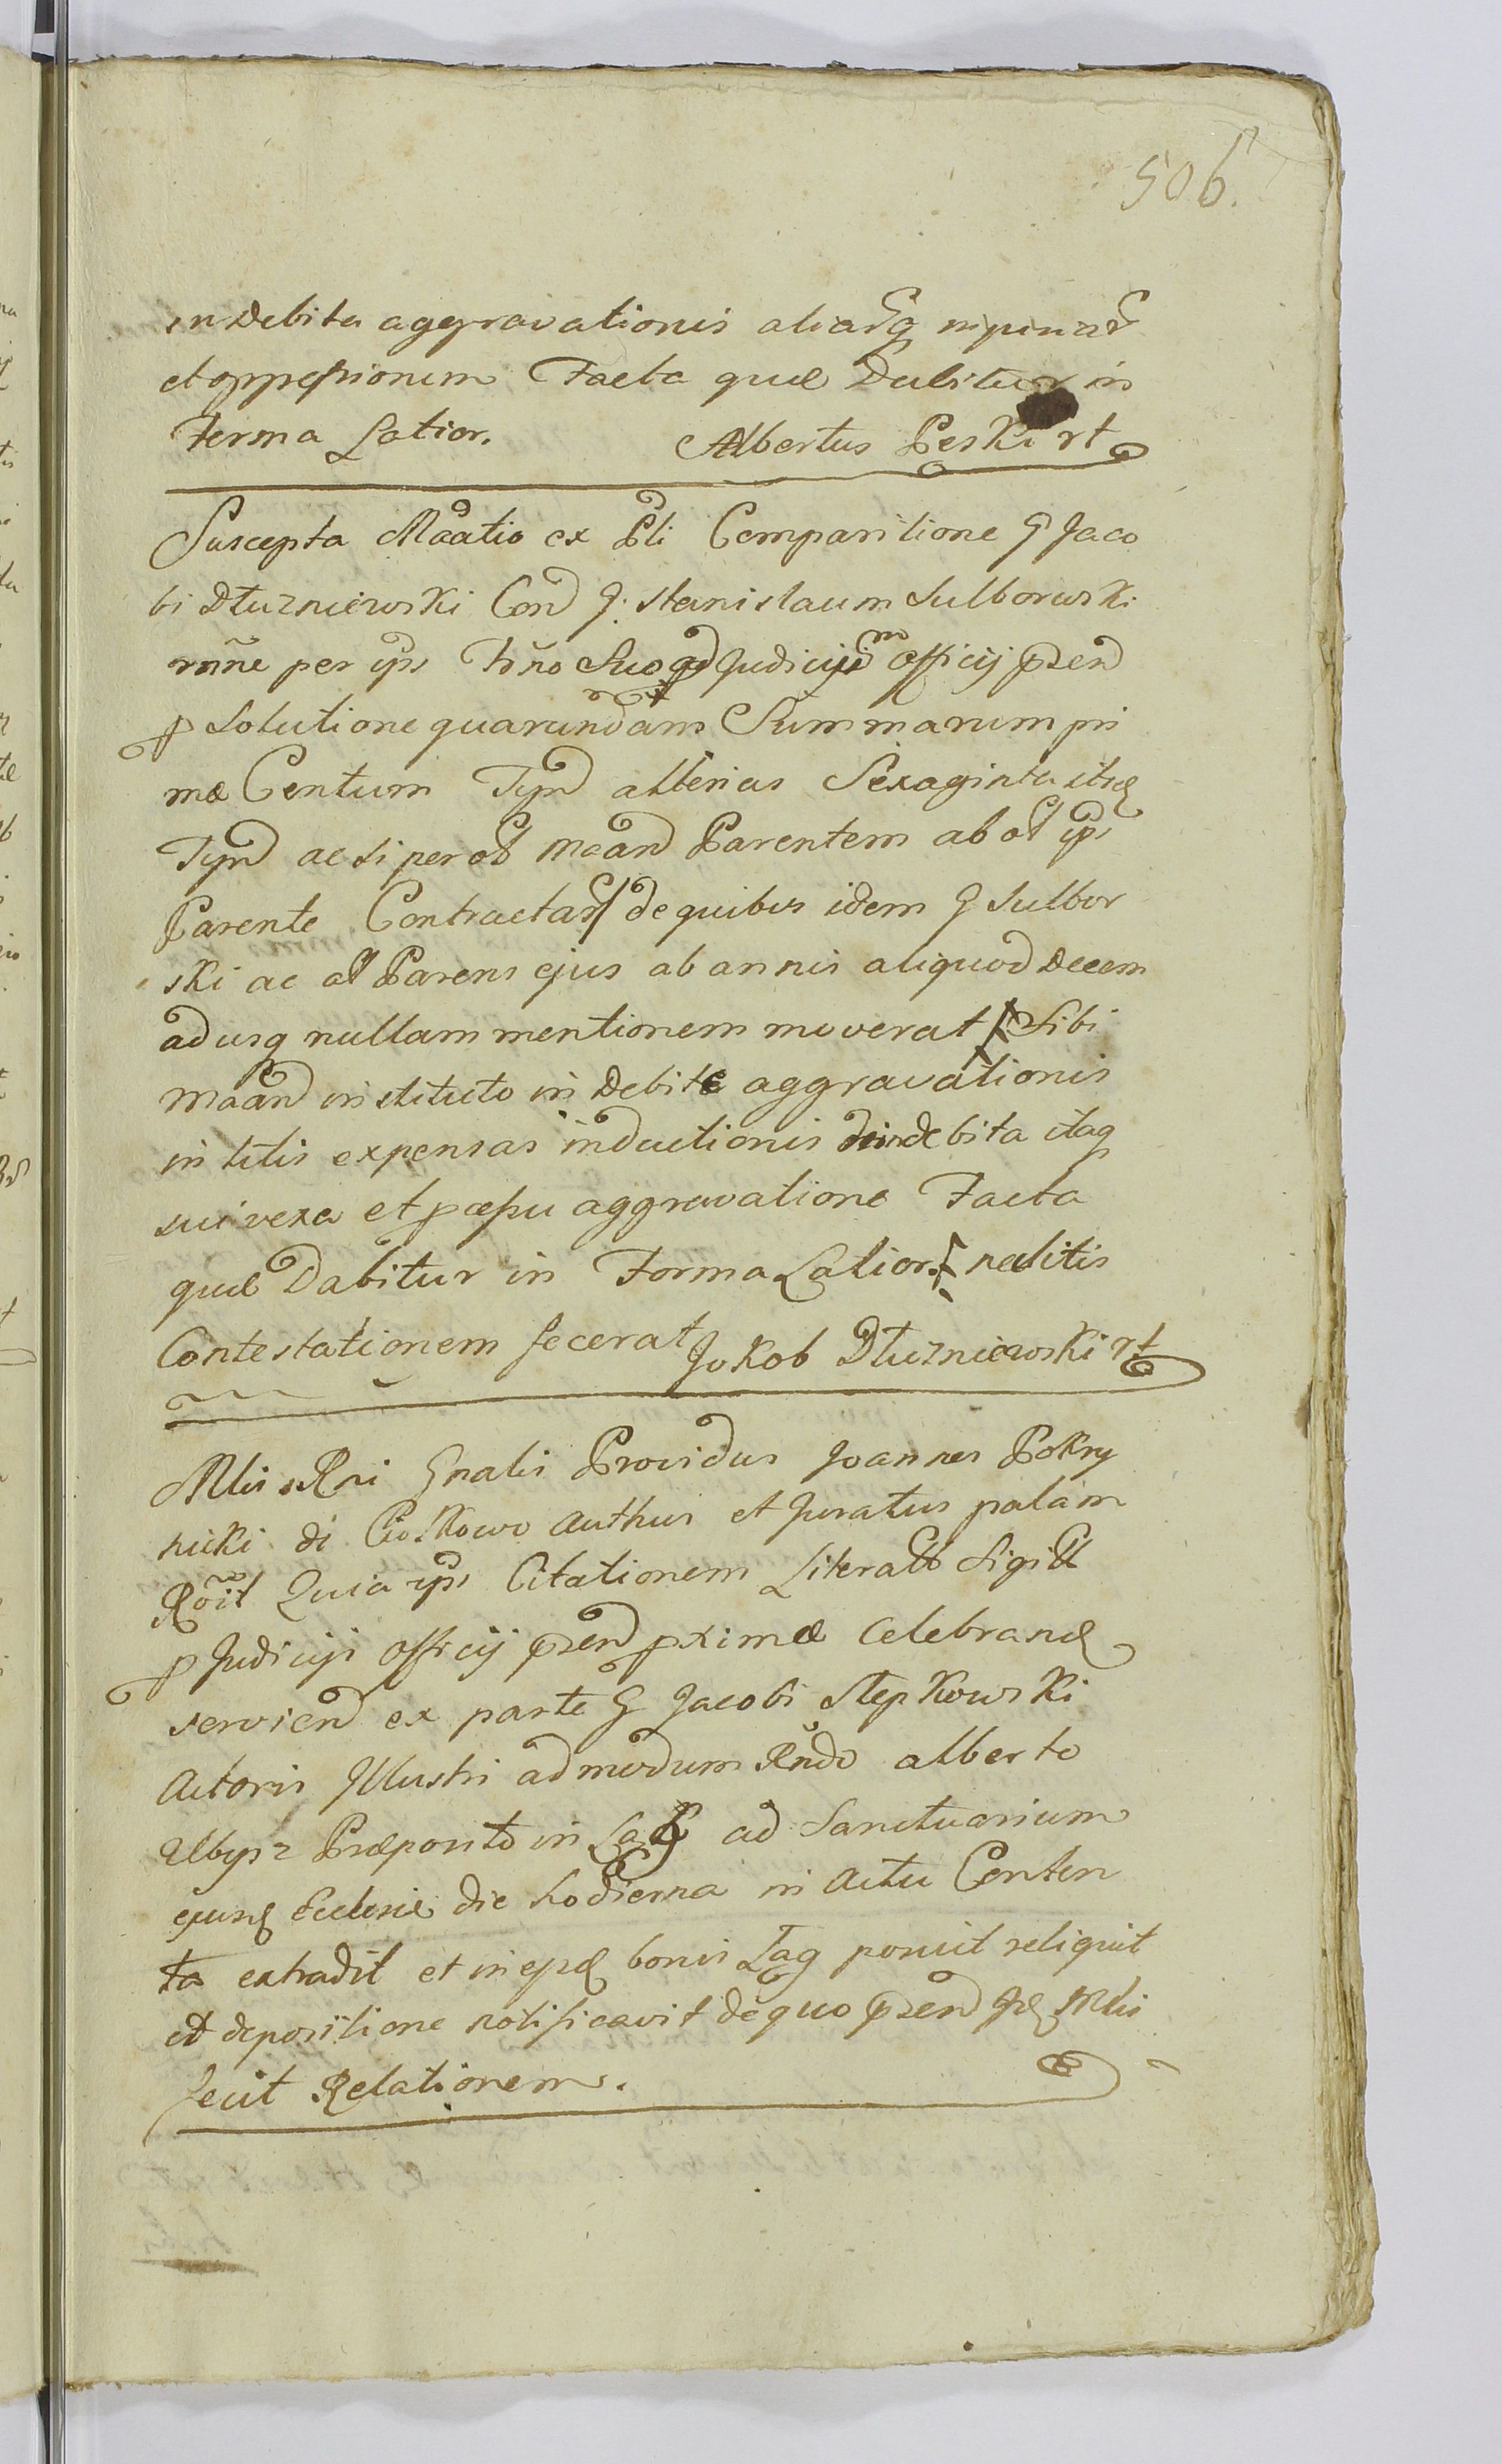 506.
indebita aggravationis aliarq
et oppressionem Facta quæ Dabitur in
Forma Latior. Albertus Peski rt
Suscepta Maatio ex Pli Comparitione G Jaco
bi Dłuzniewski Con G: Stanislaum Sulborwski
rone per ips Trno Suo qd Judicijs Officij pzen
p Solutione quarundam Summarum pri
mæ Centum Tyn alterius Sexaginta itid
Tyn ac si per ol maan Parentem ab ol ips
Parente Contractar de quibus idem G Sulbor
ski ac ol Parens ejus ab annis aliquod Decem
adusq nullam mentionem moverat Sibi
maan instituto indebite aggravationis
in litis expensas inductionis indebita itaq
sui vexa et aggravatione Facta
quæ Dabitur in Forma Latior. neclitis
Contestationem fecerat Jakob Dłuzniewski rt
Mlis Rni Gnalis Providus Joannes Pokry
nicki di Ciołkowo Authus et Juratus palam
Roit Quia ips Citationem Literall Sigill
p Judicijs Officij pzen pximæ Celebrand
servien ex parte G Jacobi Stepkowski
Actoris Illustri admodum Rndo Alberto
Præposito in Lag ad Sanctuarium
ejusd Ecclesiæ die hodierna in Actu Conten
ta extradit et in ejsd bonis Łag posuit reliquit
et depositione notificavit de quo pzen Id Mlis
fecit Relationem.